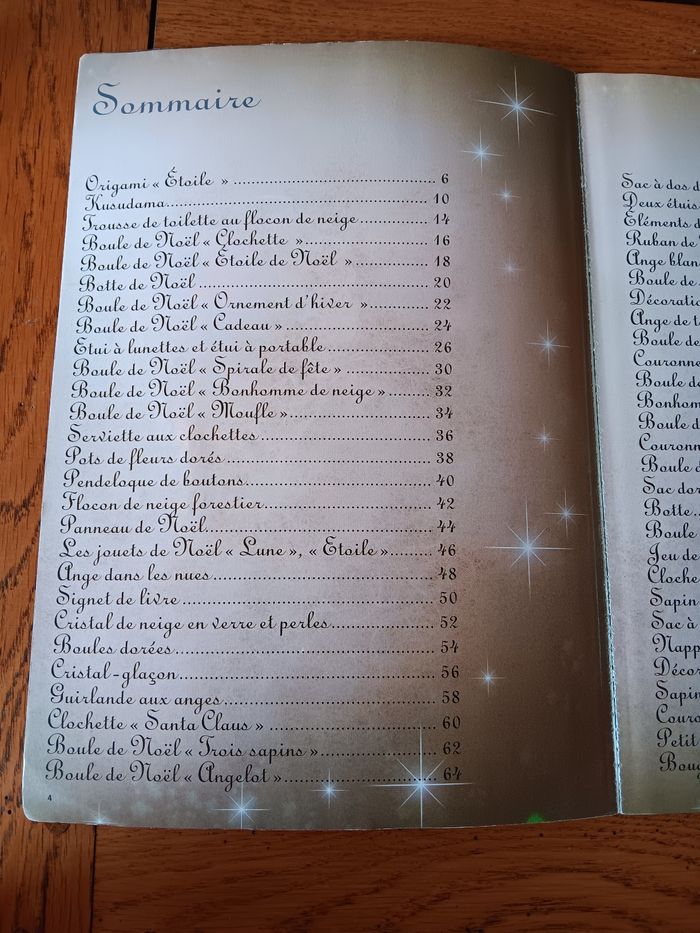 Sommaire
Origami « Étoile » .......... 6
Kusudama .......... 10
Trousse de toilette au flocon de neige .......... 14
Boule de Noël « Clochette » .......... 16
Boule de Noël « Étoile de Noël » .......... 18
Botte de Noël .......... 20
Boule de Noël « Ornement d'hiver » .......... 22
Boule de Noël « Cadeau » .......... 24
Etui à lunettes et étui à portable .......... 26
Boule de Noël « Spirale de fête » .......... 30
Boule de Noël « Bonhomme de neige » .......... 32
Boule de Noël « Moufle » .......... 34
Serviette aux clochettes .......... 36
Pots de fleurs dorés .......... 38
Pendeloque de boutons .......... 40
Flocon de neige forestier .......... 42
Panneau de Noël .......... 44
Les jouets de Noël « Lune », « Etoile » .......... 46
Ange dans les nues .......... 48
Signet de livre .......... 50
Cristal de neige en verre et perles .......... 52
Boules dorées .......... 54
Cristal-glaçon .......... 56
Guirlande aux anges .......... 58
Clochette « Santa Claus » .......... 60
Boule de Noël « Trois sapins » .......... 62
Boule de Noël « Angelot » .......... 64
4
Sac à dos
Deux étuis
Éléments
Ruban de
Ange
Boule de
Ange de
Boule de
Boule
Boule
Boule
Botte
Boule
Jeu de
Sapin
Sac à
Petit